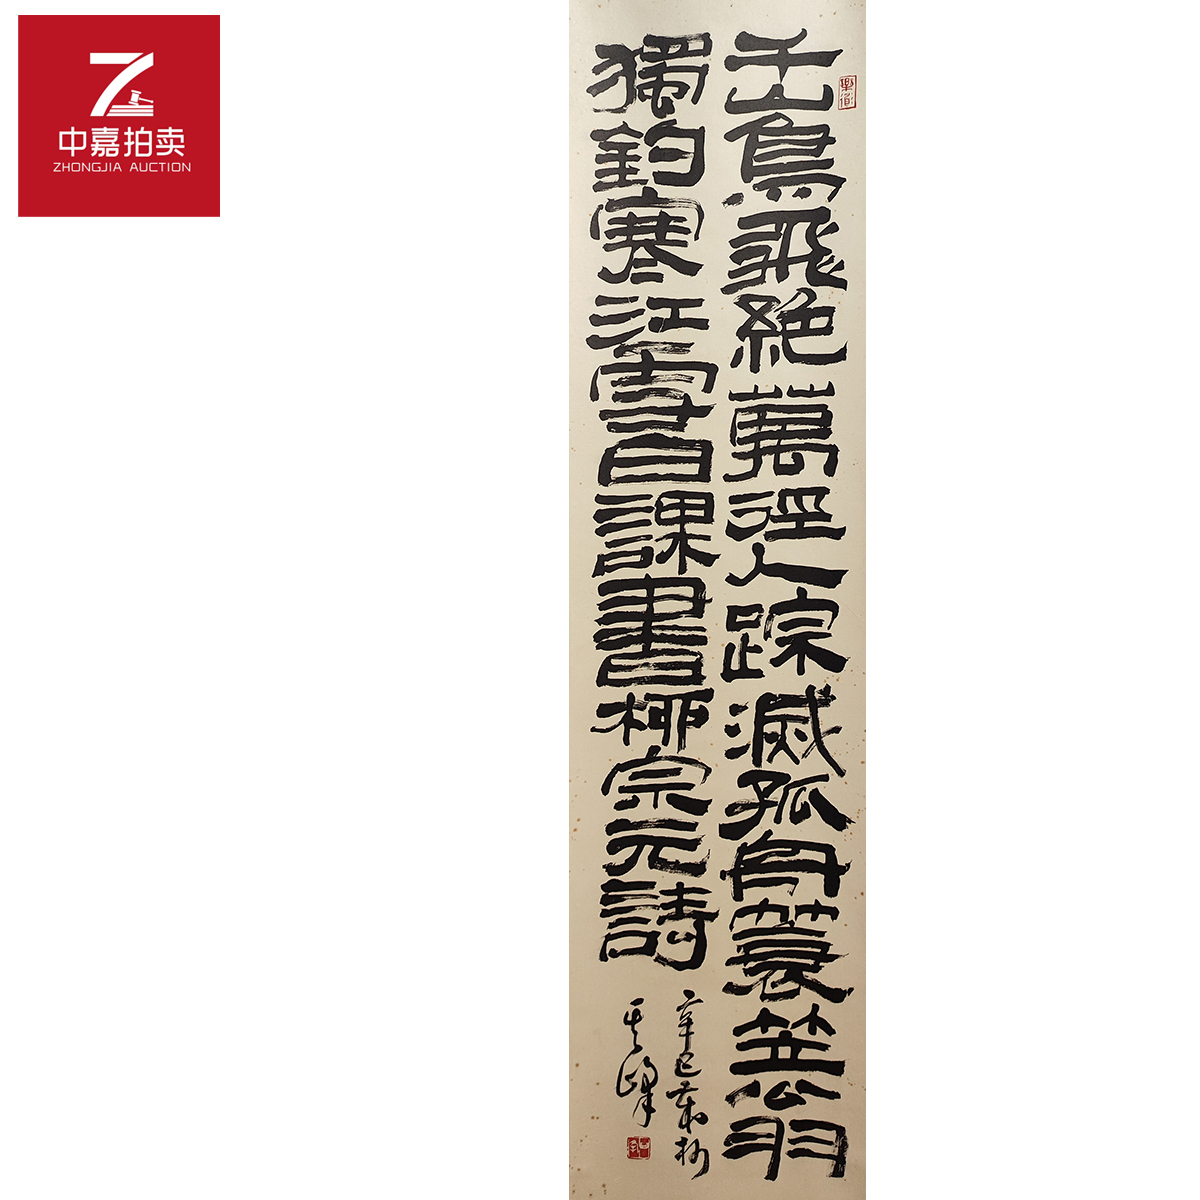 中嘉拍卖
ZHONGJIA AUCTION
千山鳥飛絶萬徑人踪滅孤舟蓑笠翁
獨釣寒江雪白課書柳宗元詩
辛巳歲杪
其峰